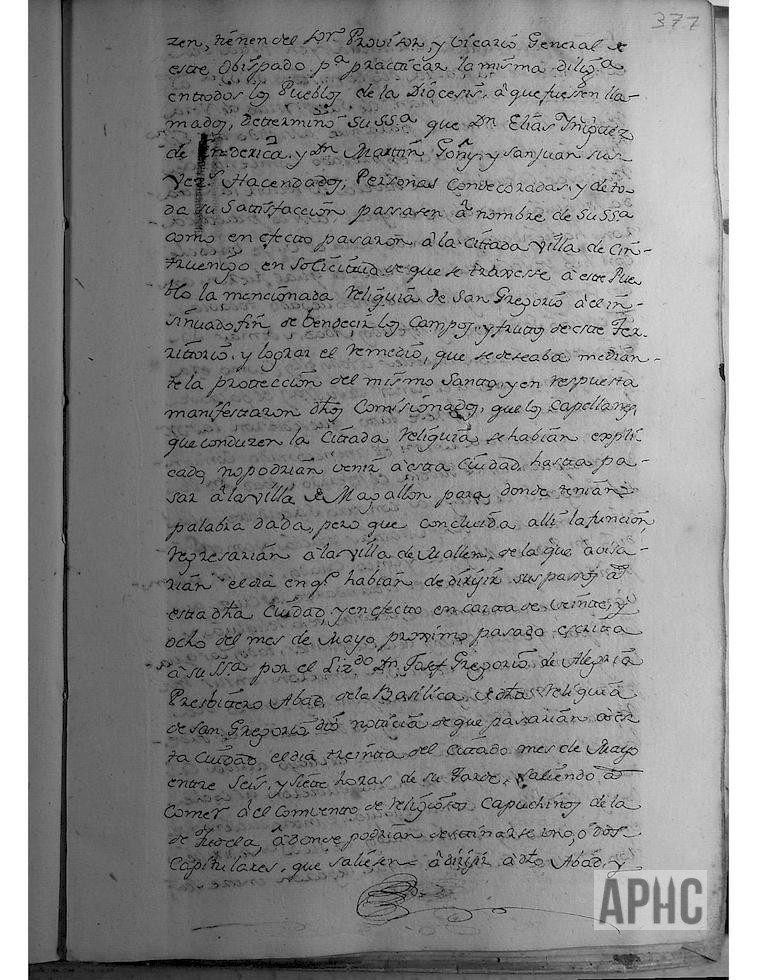 377
zen, tienen del Sor. Provisor, y Vicario General de
este Obispado pa. practicar la misma dilig.a
en todos los Pueblos de la Diocesis, a que fuesen lla-
mados, Determinó Su Ssa. que Dn. Elias Yñiguez
de y Dn. Martin Goñy, y San Juan sus
Vezs. Hacendados, Personas Condecoradas, y de to-
da su Satisfaccion pasasen â nombre de Su Ssa
como en efecto pasaron, â la Citada Villa de Cin-
truenigo en solicitud de que se traxese a este Pue-
blo la mencionada Reliquia de San Gregorio â el in-
sinuado fin de bendecir los Campos, y frutos de este Ter-
ritorio, y lograr el remedio, que se deseaba median-
te la proteccion del mismo Santo, y en respuesta
manifestaron dhos Comisionados, que los Capellanes,
que conduzen la Citada Reliquia, se habian expli-
cado, no podrian venir a esta Ciudad, hasta pa-
sar â la Villa de Magallon para donde tenian
palabra dada, pero que concluida alli la funcion
regresarian a la Villa de Mallen, de la que avisa-
rian el dia en qe. habian de dirijir sus pasos â
esta dha Ciudad, y en efecto en carta de veinte, y
ocho del mes de Mayo proximo pasado escrita
a su Ssa. por el Lizdo. Dn. Josef Gregorio de Alegria
Presbitero Abad, de la Basilica, de dha Reliquia
de San Gregorio dió noticia de que pasarian â es-
ta Ciudad el dia treinta del Citado mes de Mayo
entre Seis, y Siete horas de su Tarde, saliendo â
Comer â el Comvento de Religiosos Capuchinos de la
de Tudela, â donde podrian destinarse uno, ó dos
Capitulares, que saliesen â dirijir a dho Abad, y
APHC